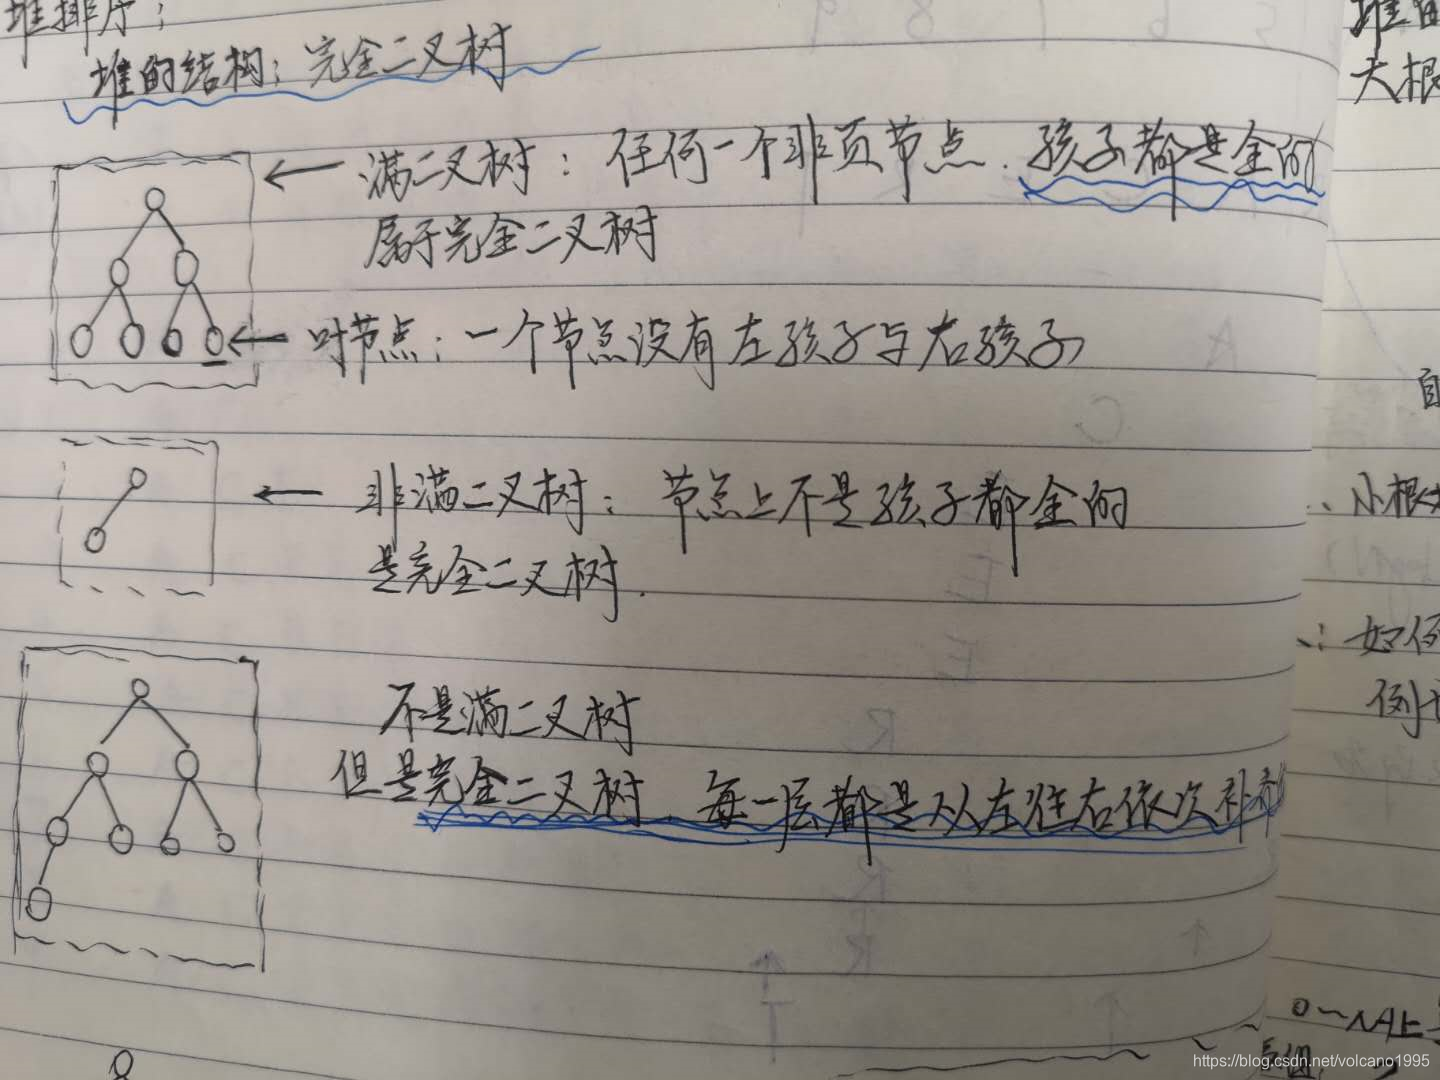 堆排序：
堆的结构：完全二叉树
满二叉树：任何一个非页节点．孩子都是全的
属于完全二叉树
叶节点：一个节点没有左孩子与右孩子
非满二叉树：节点上不是孩子都全的
是完全二叉树．
不是满二叉树
但是完全二叉树．每一层都是从左往右依次补
大根
小根
：如何
https://blog.csdn.net/volcano1995